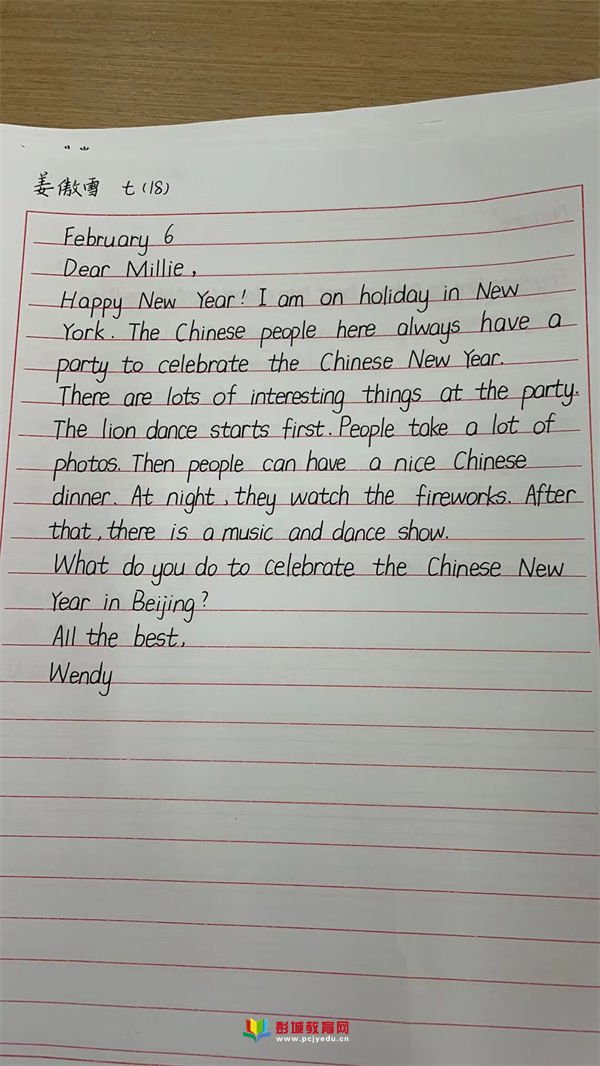 姜傲雪 七(18)
February 6
Dear Millie,
Happy New Year! I am on holiday in New
York. The Chinese people here always have a
party to celebrate the Chinese New Year.
There are lots of interesting things at the party.
The lion dance starts first. People take a lot of
photos. Then people can have a nice Chinese
dinner. At night, they watch the fireworks. After
that, there is a music and dance show.
What do you do to celebrate the Chinese New
Year in Beijing?
All the best,
Wendy
彭城教育网
www.pcjyedu.cn